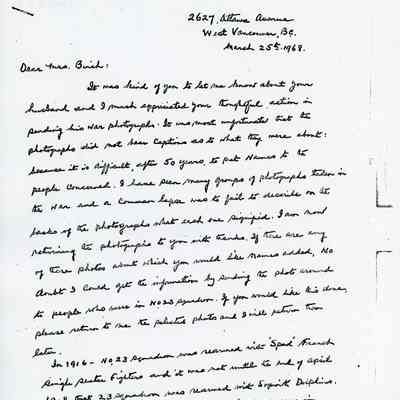 2627, Ottawa Avenue
West Vancouver, B.C.
March 25th. 1968.
Dear Mrs. Birch:
It was kind of you to let me know about your
husband and I much appreciated your thoughtful action in
sending his war photographs. It was most unfortunate that the
photographs did not bear Captions as to what they were about:
because it is difficult, after 50 years, to put Names to the
people concerned. I have seen many groups of photographs taken in
the War and a Common lapse was to fail to describe on the
backs of the photographs what each one signified. I am now
returning the photographs to you with thanks. If there are any
of these photos about which you would like names added, No
doubt I could get the information by sending the photo around
to people who were in No 23 Squadron. If you would like this done,
please return to me the selected photos and I will return them
later.
In 1916 - No. 23 Squadron was rearmed with "Spad" French
Single Seater Fighters and it was not until the end of April
that 23 Squadron was rearmed with Sopwith Dolphins.